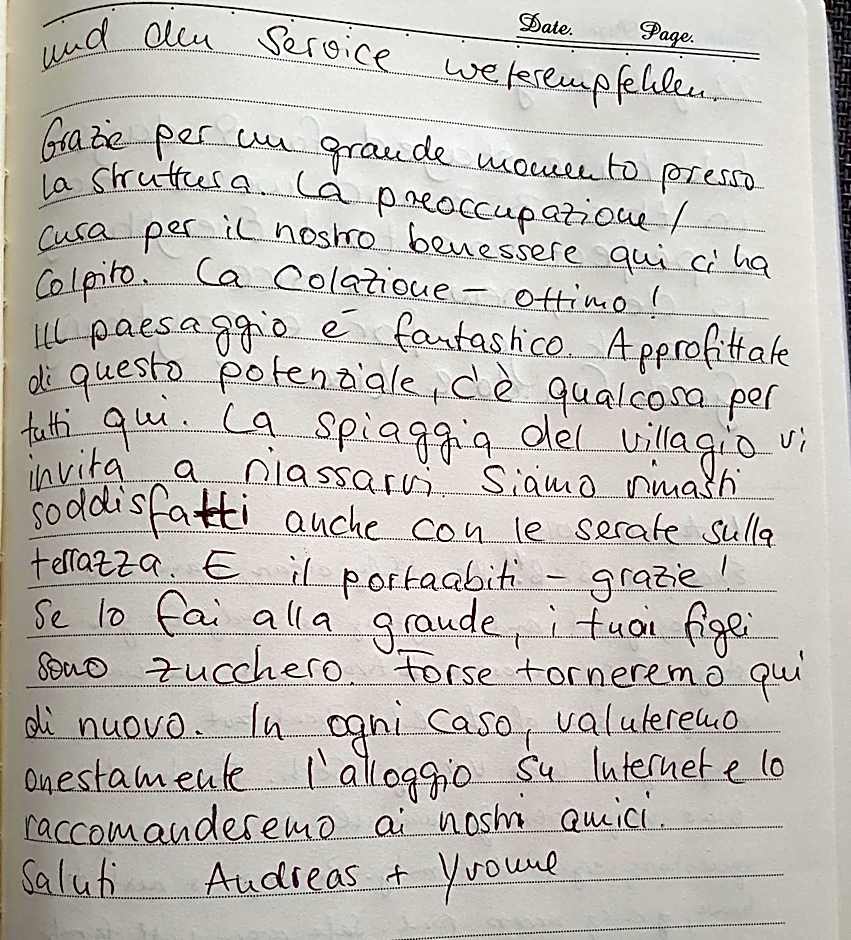 Date. Page.
und den Service weterempfehlen.
Grazie per un grande momento presso
la struttura. La preoccupazione /
cura per il nostro benessere qui ci ha
Colpito. La Colazione – ottimo!
Ill paesaggio é fantastico. Approfittate
di questo potenziale, c'è qualcosa per
tutti qui. La spiaggia del villagio vi
invita a rilassarvi. Siamo rimasti
soddisfatti anche con le serate sulla
terrazza. E il portaabiti – grazie!
Se lo fai alla grande, i tuoi figli
sono zucchero. Forse torneremo qui
di nuovo. In ogni caso, valuteremo
onestamente l'alloggio su Internet e lo
raccomanderemo ai nostri amici.
Saluti Andreas + Yvonne